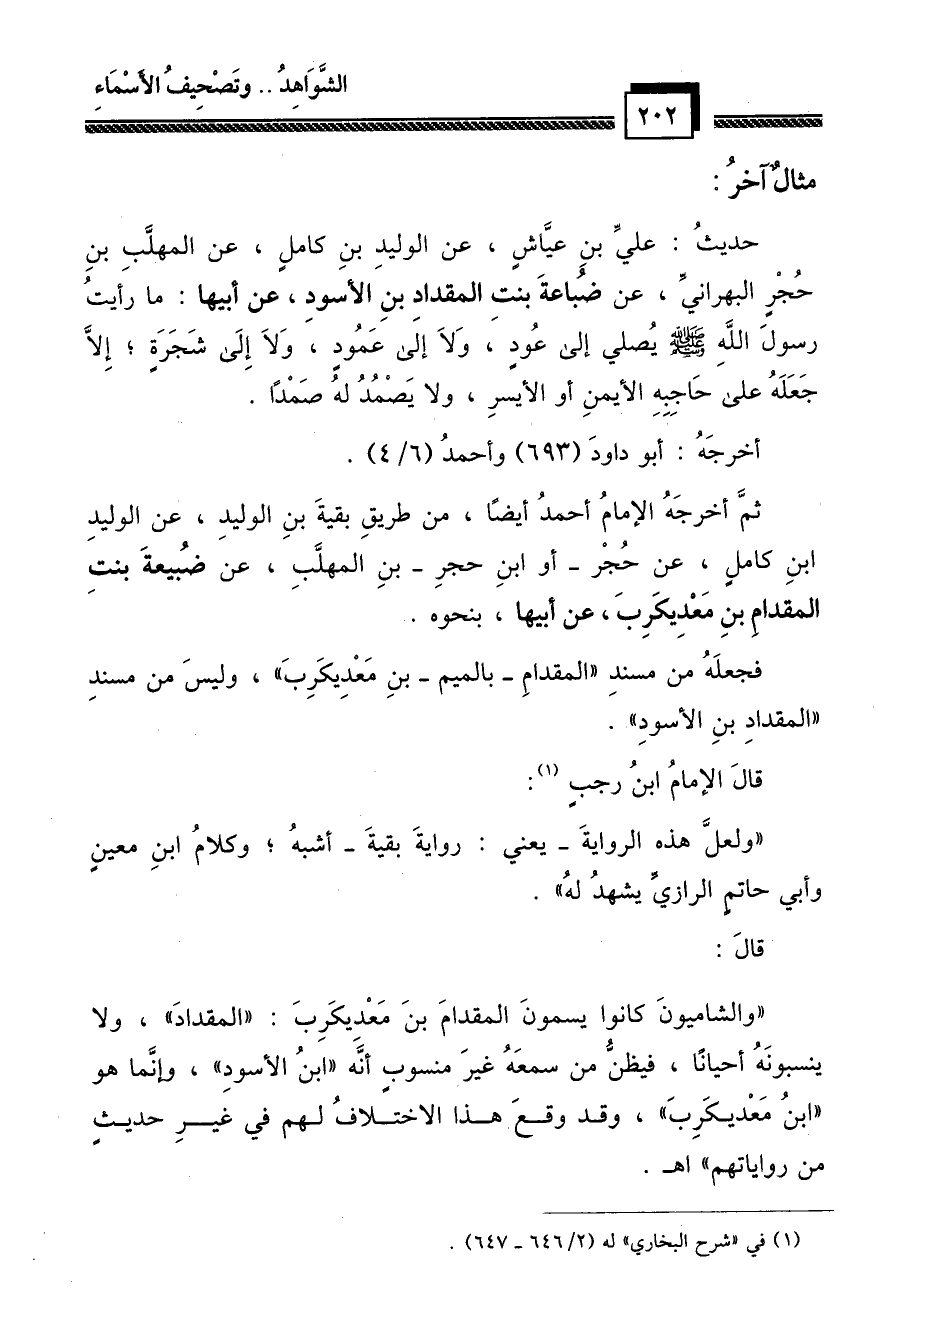 الشَّوَاهِدُ .. وتَصْحِيفُ الأَسْمَاءِ
٢٠٢
مثالٌ آخرُ :
حديثُ : عليِّ بنِ عيَّاشٍ ، عن الوليدِ بنِ كاملٍ ، عن المهلَّبِ بنِ
حُجْرٍ البهرانيِّ ، عن ضُباعةَ بنتِ المقدادِ بنِ الأسودِ ، عن أبيها : ما رأيتُ
رسولَ اللَّهِ ﷺ يُصلي إلى عُودٍ ، وَلاَ إلى عَمُودٍ ، وَلاَ إِلَى شَجَرَةٍ ؛ إِلاَّ
جَعَلَهُ على حَاجِبِهِ الأيمنِ أو الأيسرِ ، ولا يَصْمُدُ لهُ صَمْدًا .
أخرجَهُ : أبو داودَ (٦٩٣) وأحمدُ (٤/٦) .
ثمَّ أخرجَهُ الإمامُ أحمدُ أيضًا ، من طريقِ بقيةَ بنِ الوليدِ ، عن الوليدِ
ابنِ كاملٍ ، عن حُجْرِ ـ أو ابنِ حجرِ ـ بنِ المهلَّبِ ، عن ضُبيعةَ بنتِ
المقدامِ بنِ مَعْدِيكَرِبَ ، عن أبيها ، بنحوه .
فجعلَهُ من مسندِ «المقدامِ ـ بالميم ـ بنِ مَعْدِيكَرِبَ» ، وليسَ من مسندِ
«المقدادِ بنِ الأسودِ» .
قالَ الإمامُ ابنُ رجبٍ (١):
«ولعلَّ هذه الروايةَ ـ يعني : روايةَ بقيةَ ـ أشبهُ ؛ وكلامُ ابنِ معينٍ
وأبي حاتمٍ الرازيِّ يشهدُ لهُ» .
قالَ :
«والشاميونَ كانوا يسمونَ المقدامَ بنَ مَعْدِيكَرِبَ : «المقدادَ» ، ولا
ينسبونَهُ أحيانًا ، فيظنُّ من سمعَهُ غيرَ منسوبٍ أنَّه «ابنُ الأسودِ» ، وإنَّما هو
«ابنُ مَعْدِيكَرِبَ» ، وقد وقعَ هذا الاختلافُ لهم في غيرِ حديثٍ
من رواياتهم» اهـ .
(١) في «شرح البخاري» له (٢/ ٦٤٦ ـ ٦٤٧) .